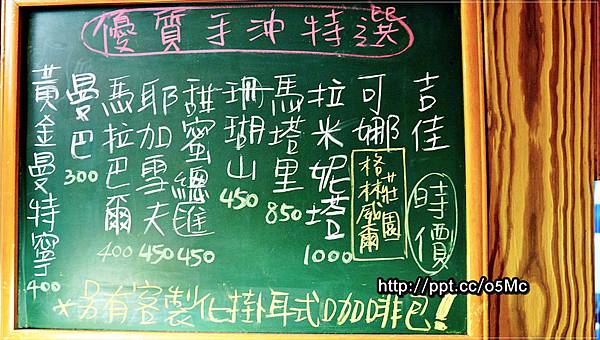 優質手沖特選
吉佳 時價
可娜 格林威爾莊園
拉米妮塔 1000
馬塔里 850
珊瑚山 450
甜蜜總匯 450
耶加雪夫 450
馬拉巴爾 400
曼巴 300
黃金曼特寧 400
*另有客製化掛耳式咖啡包!
http://ppt.cc/o5Mc